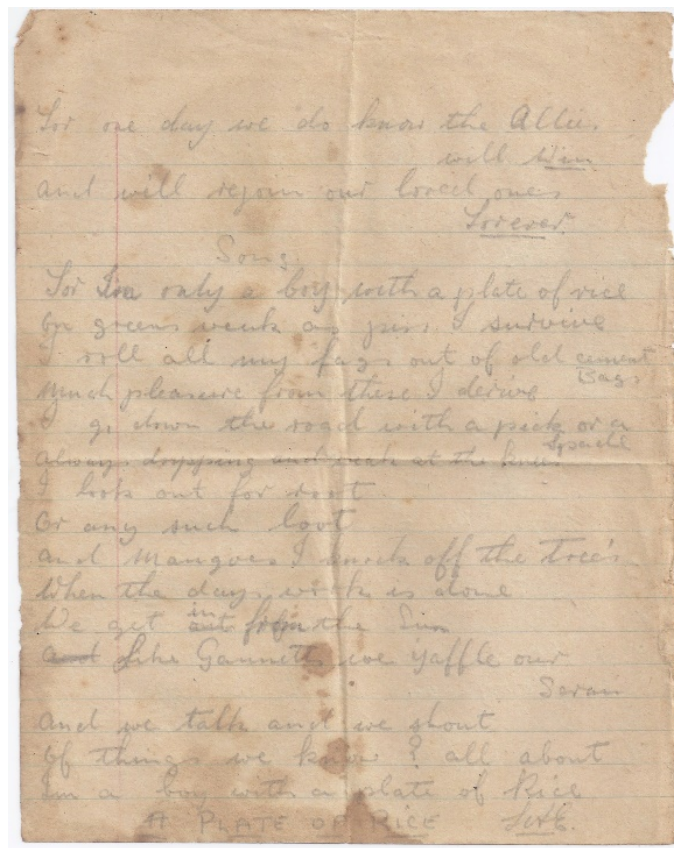 For one day we do know the Allies
will Win
and will rejoin our loved ones
Forever.
Song
For Im only a boy with a plate of rice
On greens weak as piss I survive
I roll all my fags out of old cement
Bags
Much pleasure from these I derive
I go down the road with a pick or a
Spade
always dropping and weak at the knees
I look out for root
Or any such loot
and Mangoes I knock off the Tree's
When the days work is done
We get in from the Sun
and Like Gannetts we yaffle our
Scran
and we talk and we shout
Of things we know ? all about
Im a boy with a plate of Rice
A PLATE OF RICE